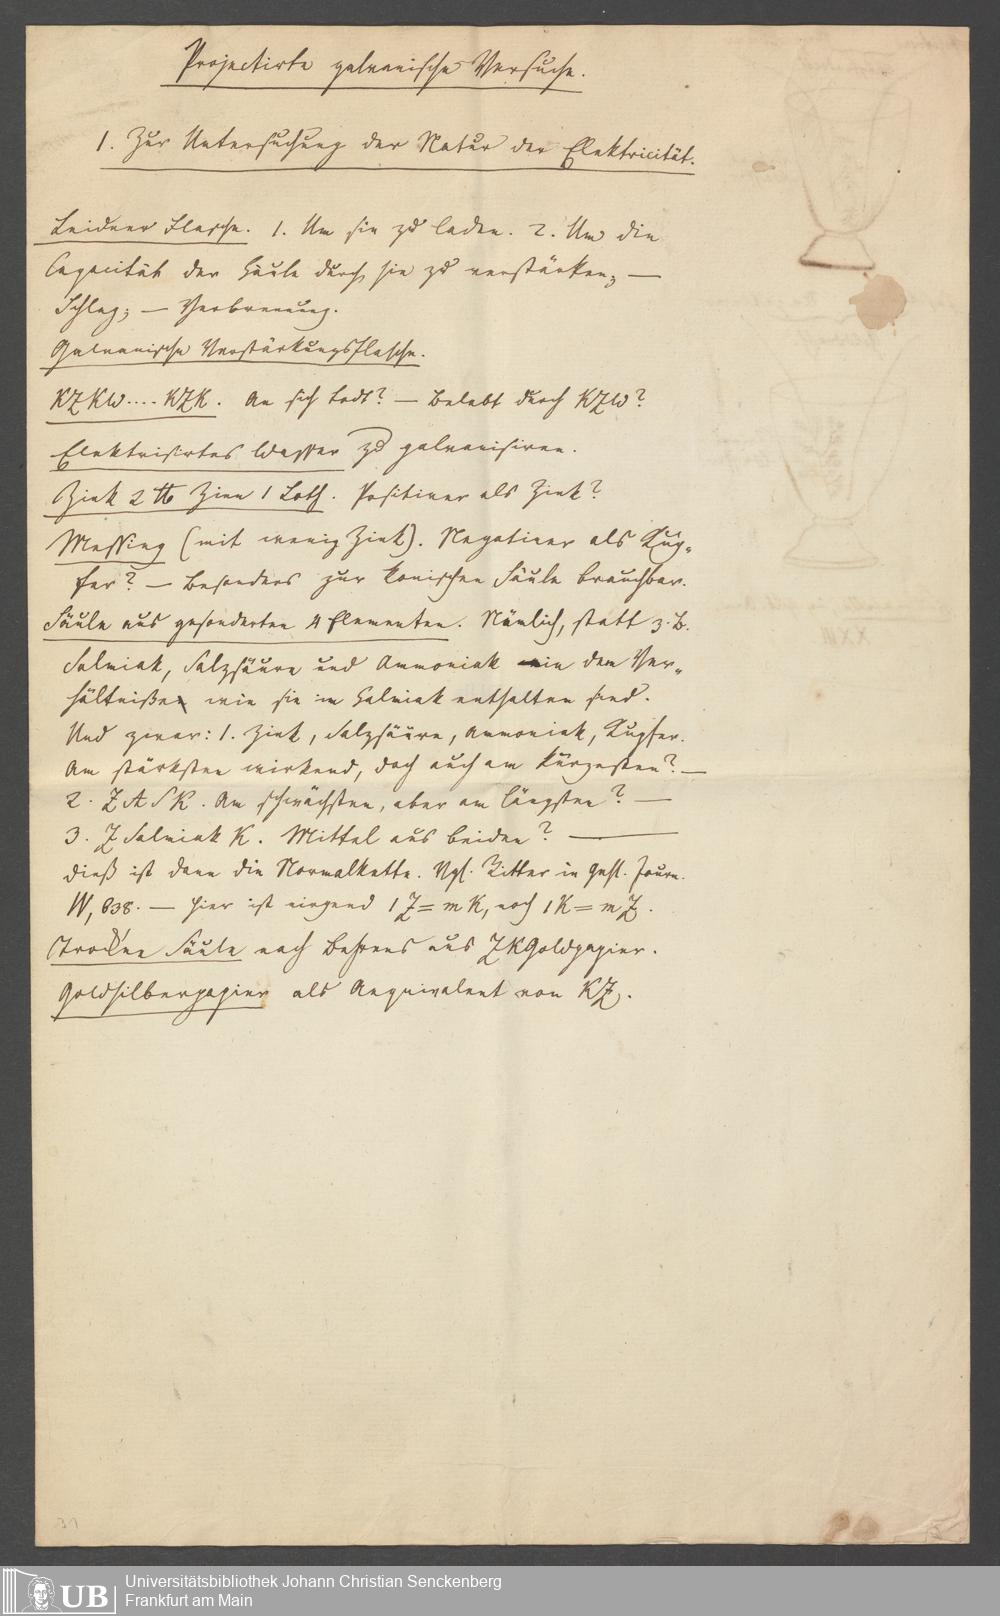 Projectirte galvanische Versuche.
1. Zur Untersuchung der Natur der Elektricität.
Leidner Flasche. 1. Um sie zu laden. 2. Um die
Capacität der Säule durch sie zu verstärken; —
Schlag; — Verbrennung.
Galvanische Verstärkungsflasche.
KZKW....KZK. An sich todt? — Belebt durch KZW?
Elektrisirtes Wasser zu galvanisiren.
Zink 2 ℔ Zinn 1 Loth. Positiver als Zink?
Messing (mit wenig Zink). Negativer als Kup-
fer? — Besonders zur konischen Säule brauchbar.
Säule aus gesonderten 4 Elementen. Nämlich, statt z.B.
Salmiak, Salzsäure und Ammoniak in den Ver-
hältnißen wie sie im Salmiak enthalten sind.
Und zwar: 1. Zink, Salzsäure, Ammoniak, Kupfer.
Am stärksten wirkend, doch auch am kürzesten? —
2. Z A S K. Am schwächsten, aber am längsten? —
3. Z Salmiak K. Mittel aus beiden? —
dieß ist dann die Normalkette. Vgl. Ritter in Gehl. Journ.
IV, 638. — Hier ist nirgend 1 Z = m K, noch 1 K = m Z.
Trockne Säule nach Behrens aus ZKGoldpapier.
Goldsilberpapier als Aequivalent von KZ.
31
UB
Universitätsbibliothek Johann Christian Senckenberg
Frankfurt am Main